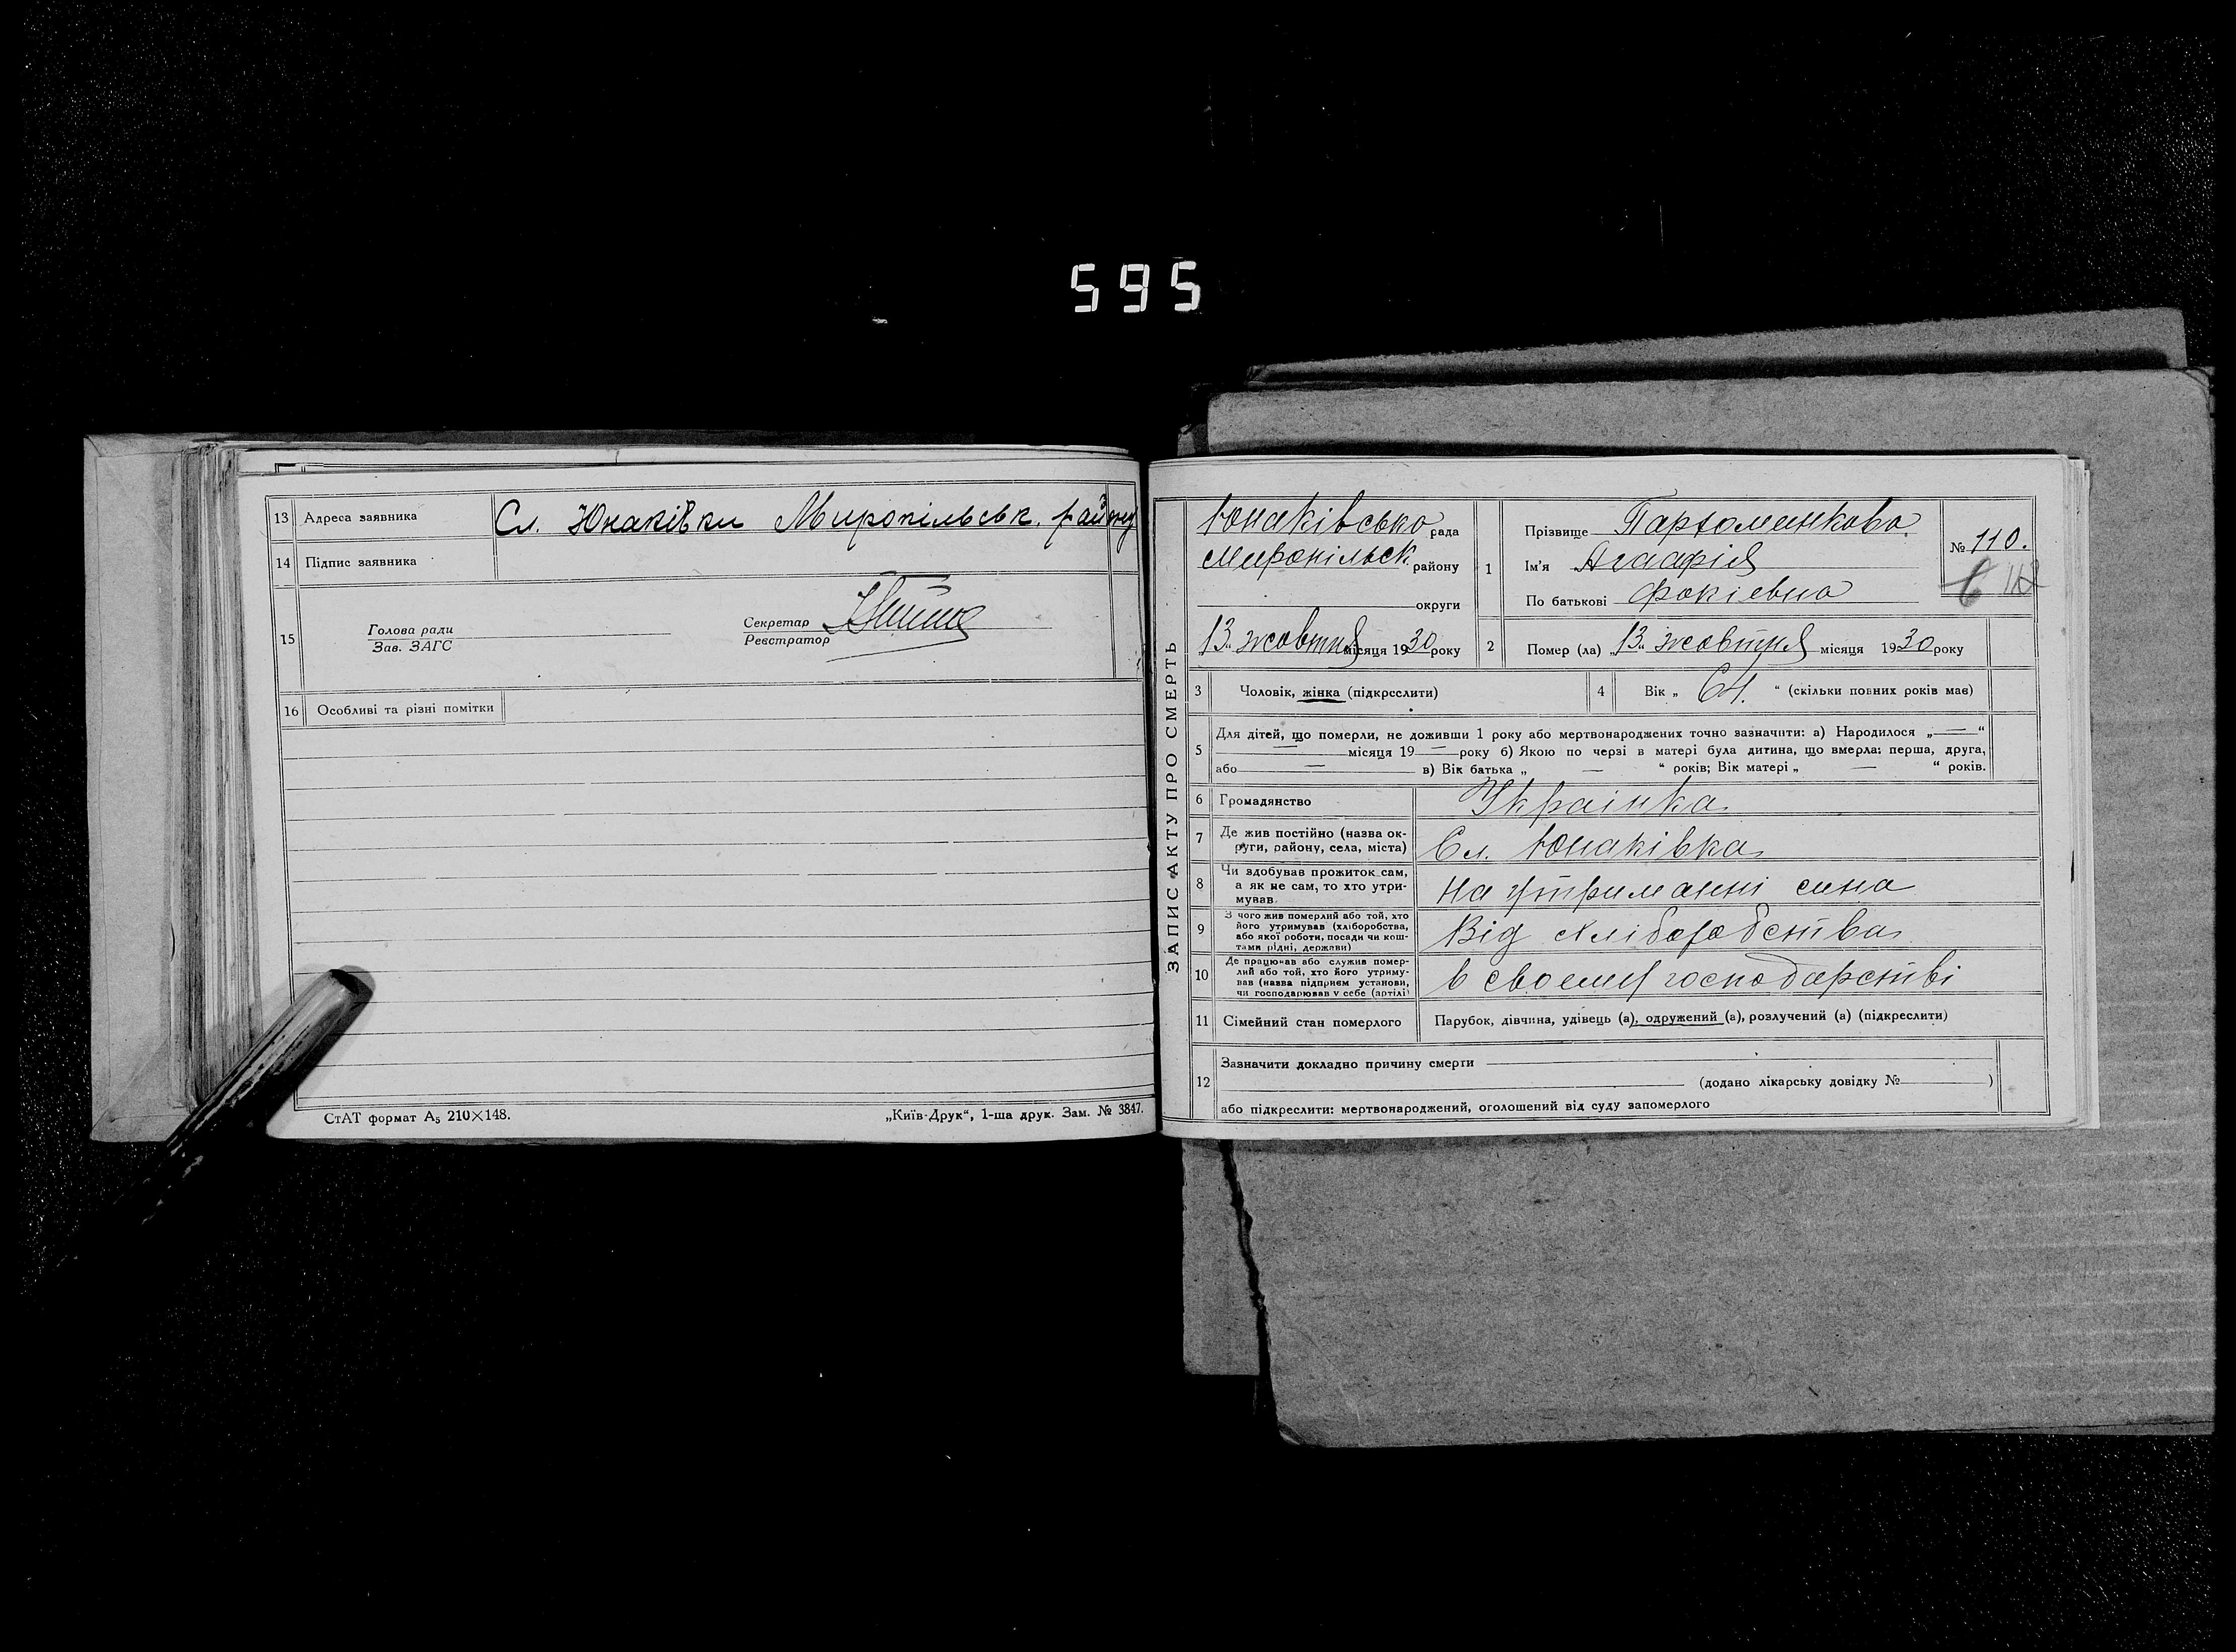 595
13 Адреса заявника Сл. Юнаківки Миропільськ. району
14 Підпис заявника
15 Голова ради
Зав. ЗАГС
Секретар
Реєстратор
16 Особливі та різні помітки
СтАТ формат А5 210×148.
„Київ-Друк“, 1-ша друк. Зам. № 3847.
ЗАПИС АКТУ ПРО СМЕРТЬ
Юнаківсько рада
Миропільськ. району
округи
„13“ жовтня місяця 1930 року
1 Прізвище Пархоменкова
Ім'я Агафія
По батькові Фокієвна
№ 110.
2 Помер (ла) „13“ жовтня місяця 1930 року
3 Чоловік, жінка (підкреслити)
4 Вік „ 64. “ (скільки повних років має)
5 Для дітей, що померли, не доживши 1 року або мертвонароджених точно зазначити: а) Народилося „—“
— місяця 19 — року б) Якою по черзі в матері була дитина, що вмерла: перша, друга,
або — в) Вік батька „ — “ років; Вік матері „ — “ років.
6 Громадянство Українка
7 Де жив постійно (назва округи, району, села, міста) Сл. Юнаківка
8 Чи здобував прожиток сам, а як не сам, то хто утримував. На утриманні сина
9 З чого жив померлий або той, хто його утримував (хліборобства, або якої роботи, посади чи коштами рідні, держави) Від хліборобства
10 Де працював або служив померлий або той, хто його утримував (назва підприєм установи, чи господарював у себе (артілі) в своему господарстві
11 Сімейний стан померлого Парубок, дівчина, удівець (а), одружений (а), розлучений (а) (підкреслити)
12 Зазначити докладно причину смерти
(додано лікарську довідку № )
або підкреслити: мертвонароджений, оголошений від суду запомерлого